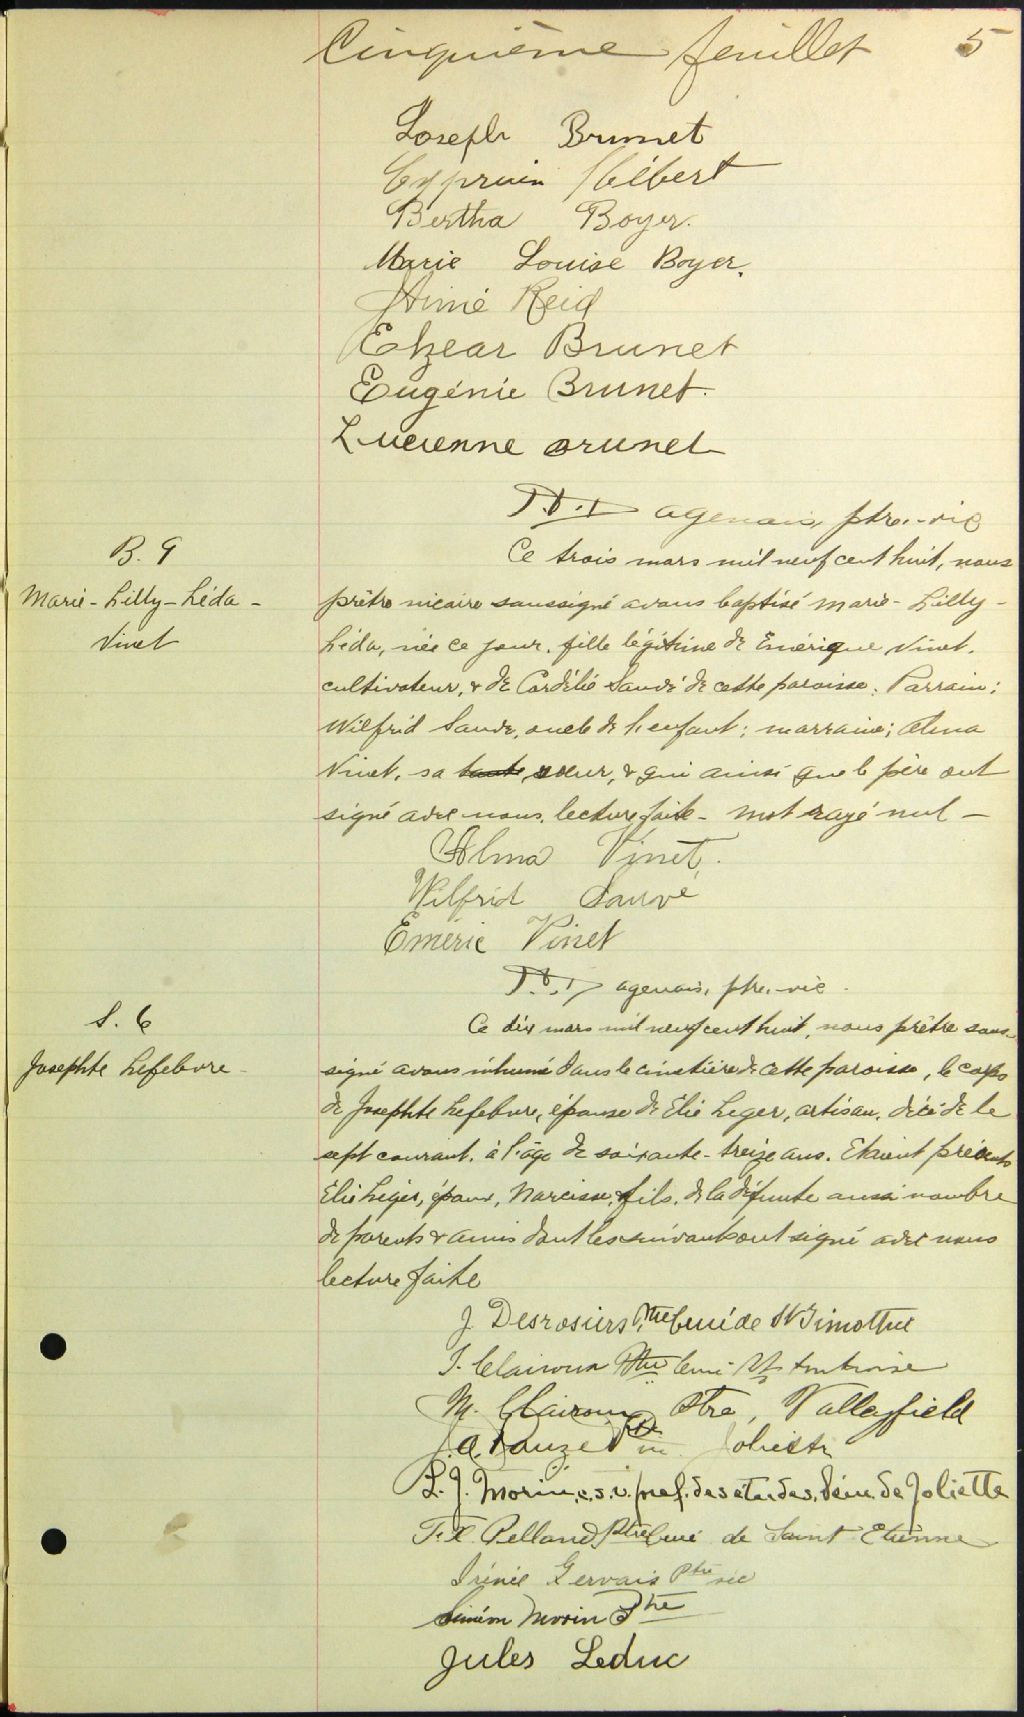 Cinquième feuillet 5
Joseph Brunet
Cyprien Hébert
Bertha Boyer.
Marie Louise Boyer.
Aimé Reid
Elzear Brunet
Eugénie Brunet.
Lucienne Brunet
agenais, ptre.-vic
B. 9
Marie-Lilly-Léda-
Vinet
Ce trois mars mil neuf cent huit, nous
prêtre vicaire soussigné avons baptisé Marie-Lilly-
Léda, née ce jour, fille légitime de Emérique Vinet,
cultivateur, & de Cordélie Sauvé de cette paroisse. Parrain:
Wilfrid Sauvé, oncle de l'enfant; marraine; Alma
Vinet, sa tante, soeur, & qui ainsi que le père ont
signé avec nous, lecture faite - mot rayé nul -
Alma Vinet.
Wilfrid Sauvé
Eméric Vinet
agenais, ptre.-vic.
S. 6
Josephte Lefebvre
Ce dix mars mil neuf cent huit, nous prêtre sous-
signé avons inhumé dans le cimetière de cette paroisse, le corps
de Josephte Lefebvre, épouse de Elie Leger, artisan, décédée le
sept courant, à l'âge de soixante-treize ans. Etaient présents
Elie Leger, époux, Narcisse, fils, de la défunte ainsi nombre
de parents & amis dont les suivants ont signé avec nous
lecture faite
J. Desrosiers, Ptre Curé de St Timothée
Ptre Curé
M. Clairoux Ptre, Valleyfield
J. A. Joliette
L. J. Morin, c.s.v. préf. des études, Sém. de Joliette
F. X. Pelland Ptre Curé de Saint Etienne
Irénée Gervais Ptre vic
Siméon Morin Ptre
Jules Leduc